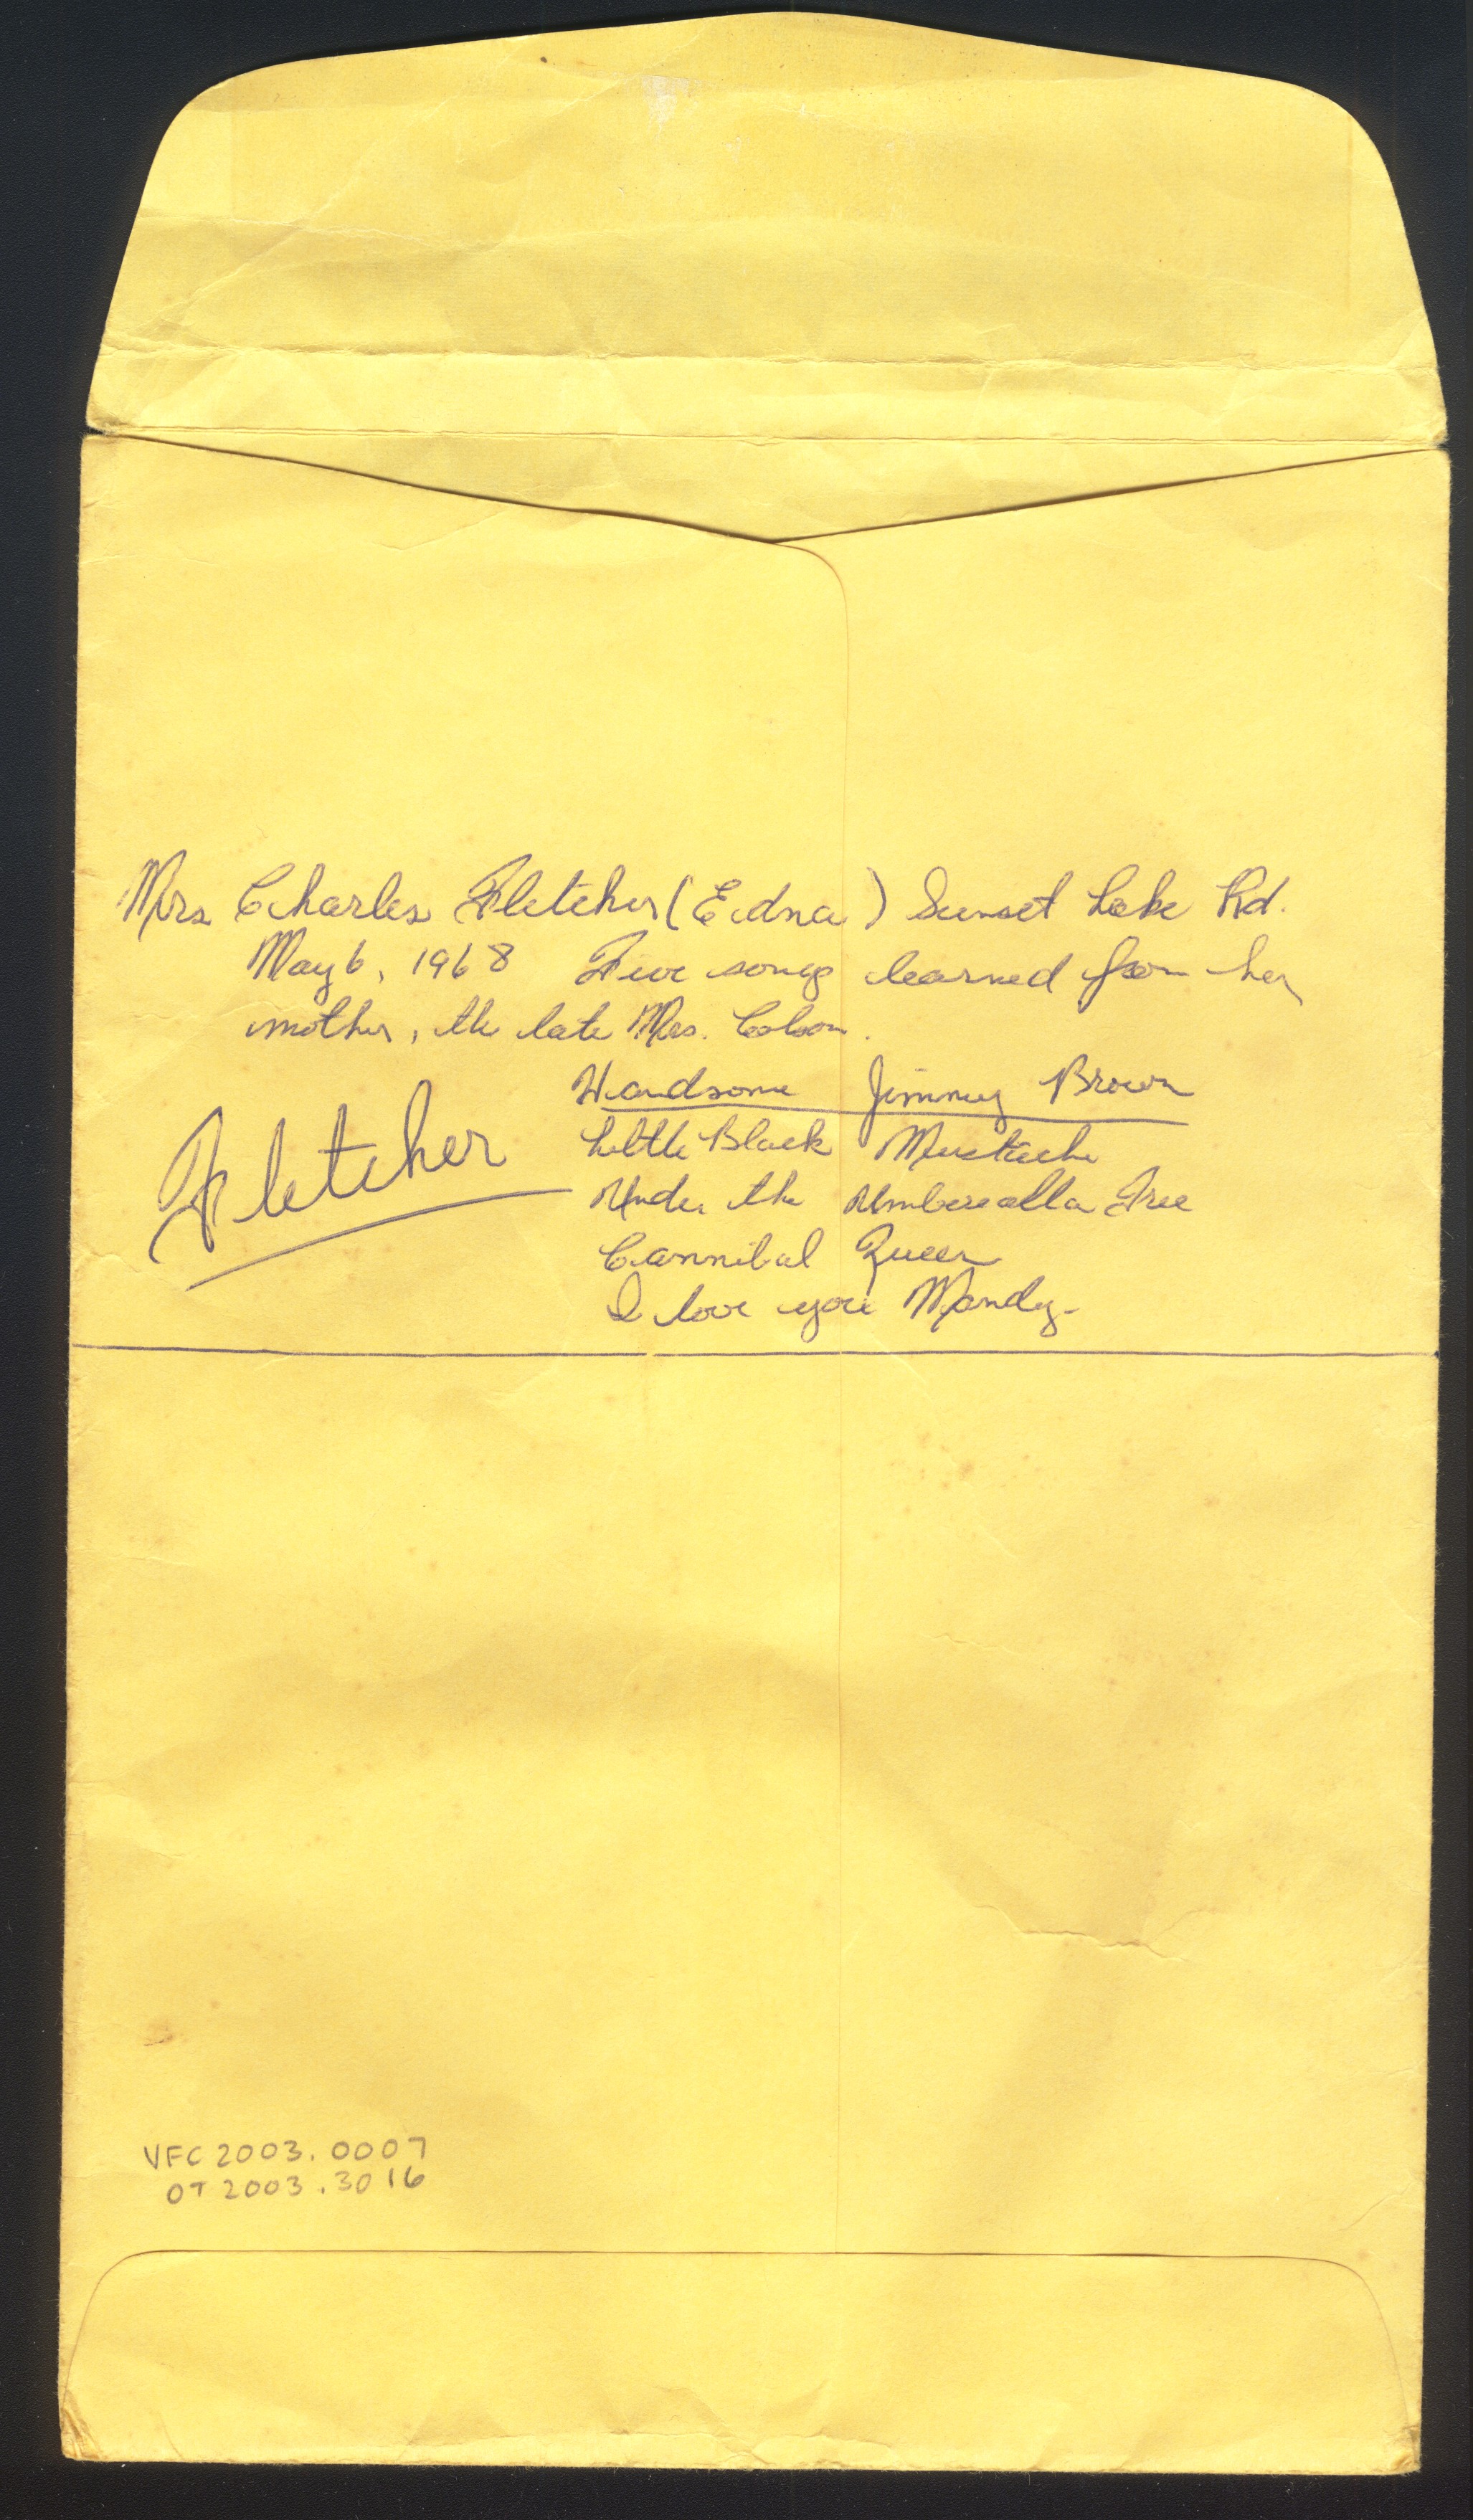 Mrs Charles Fletcher (Edna) Sunset Lake Rd.
May 6, 1968 Five songs learned from her
mother, the late Mrs. Colson.
Handsome Jimmy Brown
Little Black Mustache
Fletcher
Under the Umberealla Tree
Cannibal Queen
I love you Mandy.
VFC 2003.0007
OT 2003.3016